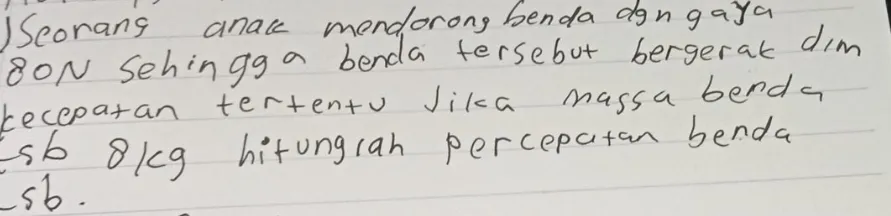 )Seorang anak mendorong benda dgn gaya
80N sehingga benda tersebut bergerak dlm
kecepatan tertentu Jika massa benda
tsb 8kg hitunglah percepatan benda
tsb.